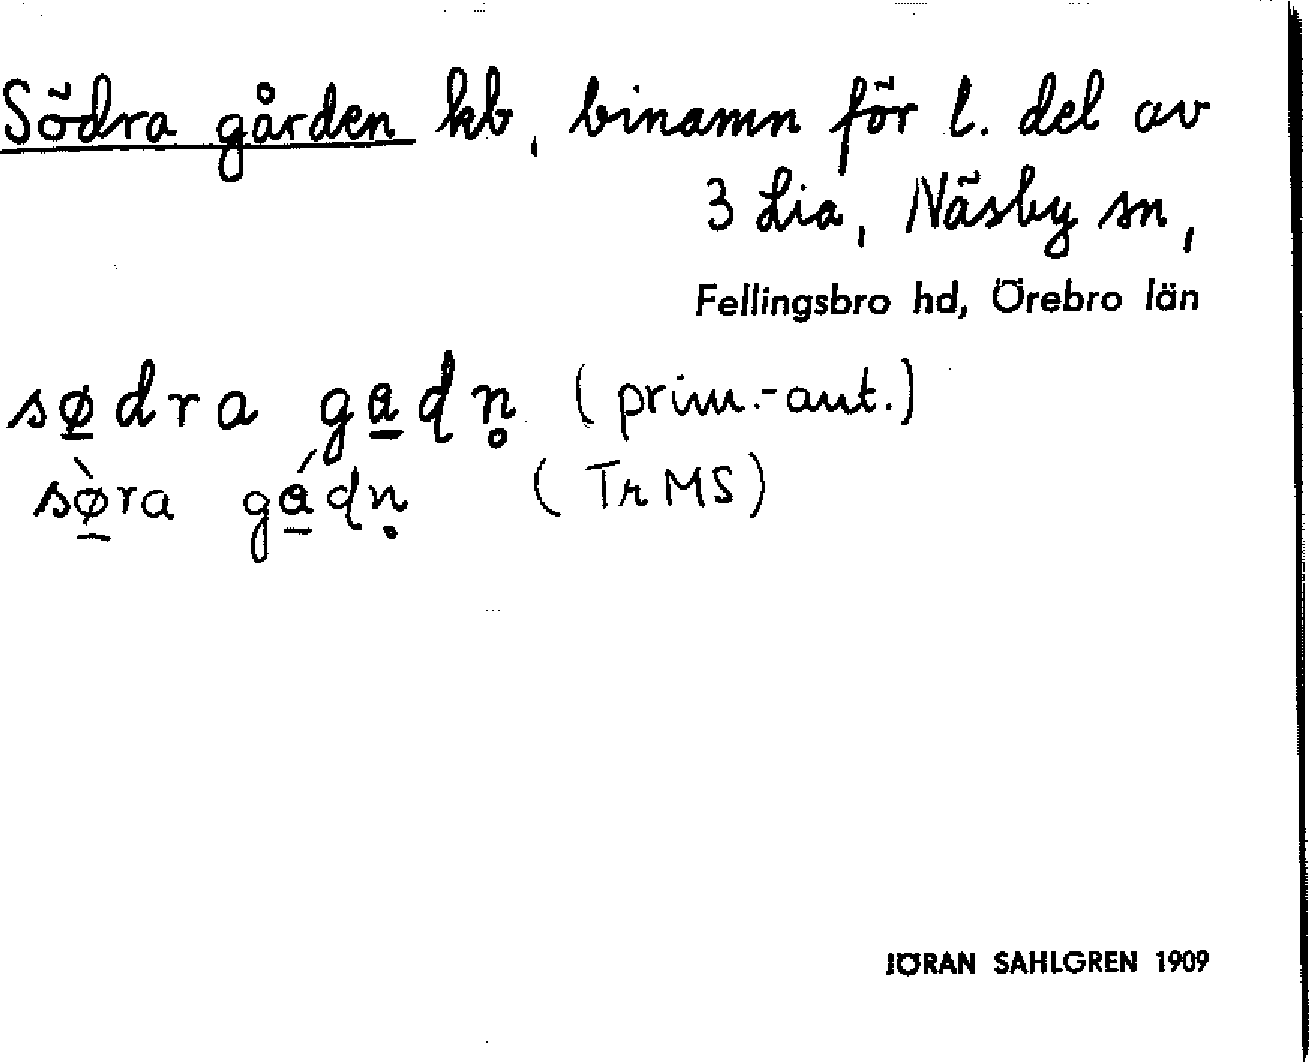 Södra gården kb, binamn för l. del av
3 Lia, Näsby sn,
Fellingsbro hd, Örebro län
sø̲dra ga̲dn̥ (prim.-ant.)
sø̲̀ra gá̲dn̥ (Tr MS)
JÖRAN SAHLGREN 1909